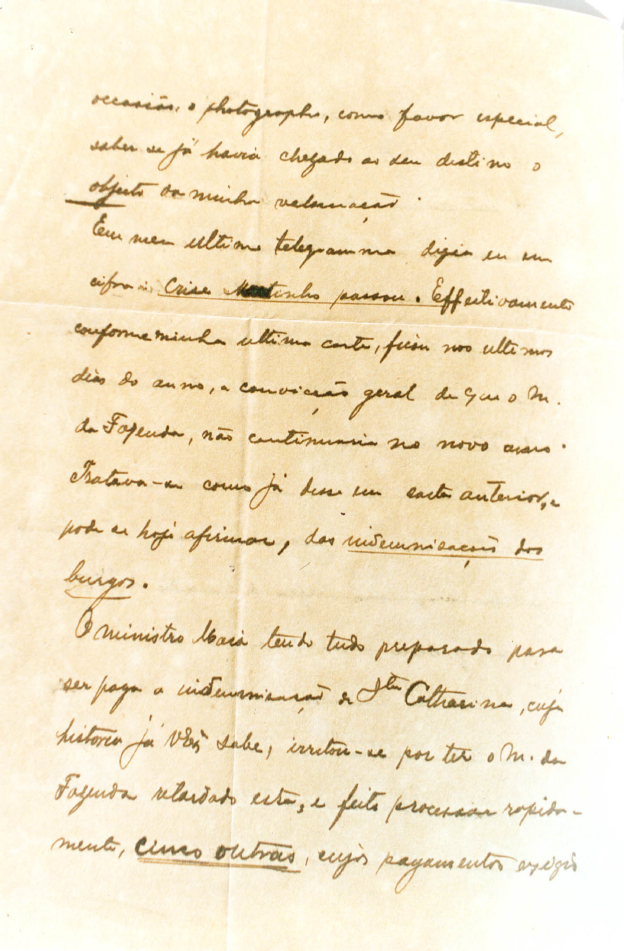 occasião, o photographo, como favor especial,
saber se já havia chegado ao seu destino o
objecto da minha
Em meu ultimo telegramma dizia eu em
cifra: Crise Murtinho passou. Effectivamente
conforme minha ultima carta, ficou nos ultimos
dias do anno, a convicção geral de que o M.
da Fazenda, não continuaria no novo anno.
Tratava-se como já disse em carta anterior, e
pode se hoje afirmar, das indemnisações dos
burgos.
O ministro Maia tendo tudo preparado para
ser paga a indemnisação de Sta Catharina, cuja
historia já VEx sabe, irritou-se por ter o M. da
Fazenda retardado esta, e feito processar rapida-
mente, cinco outras, cujos pagamentos exigio